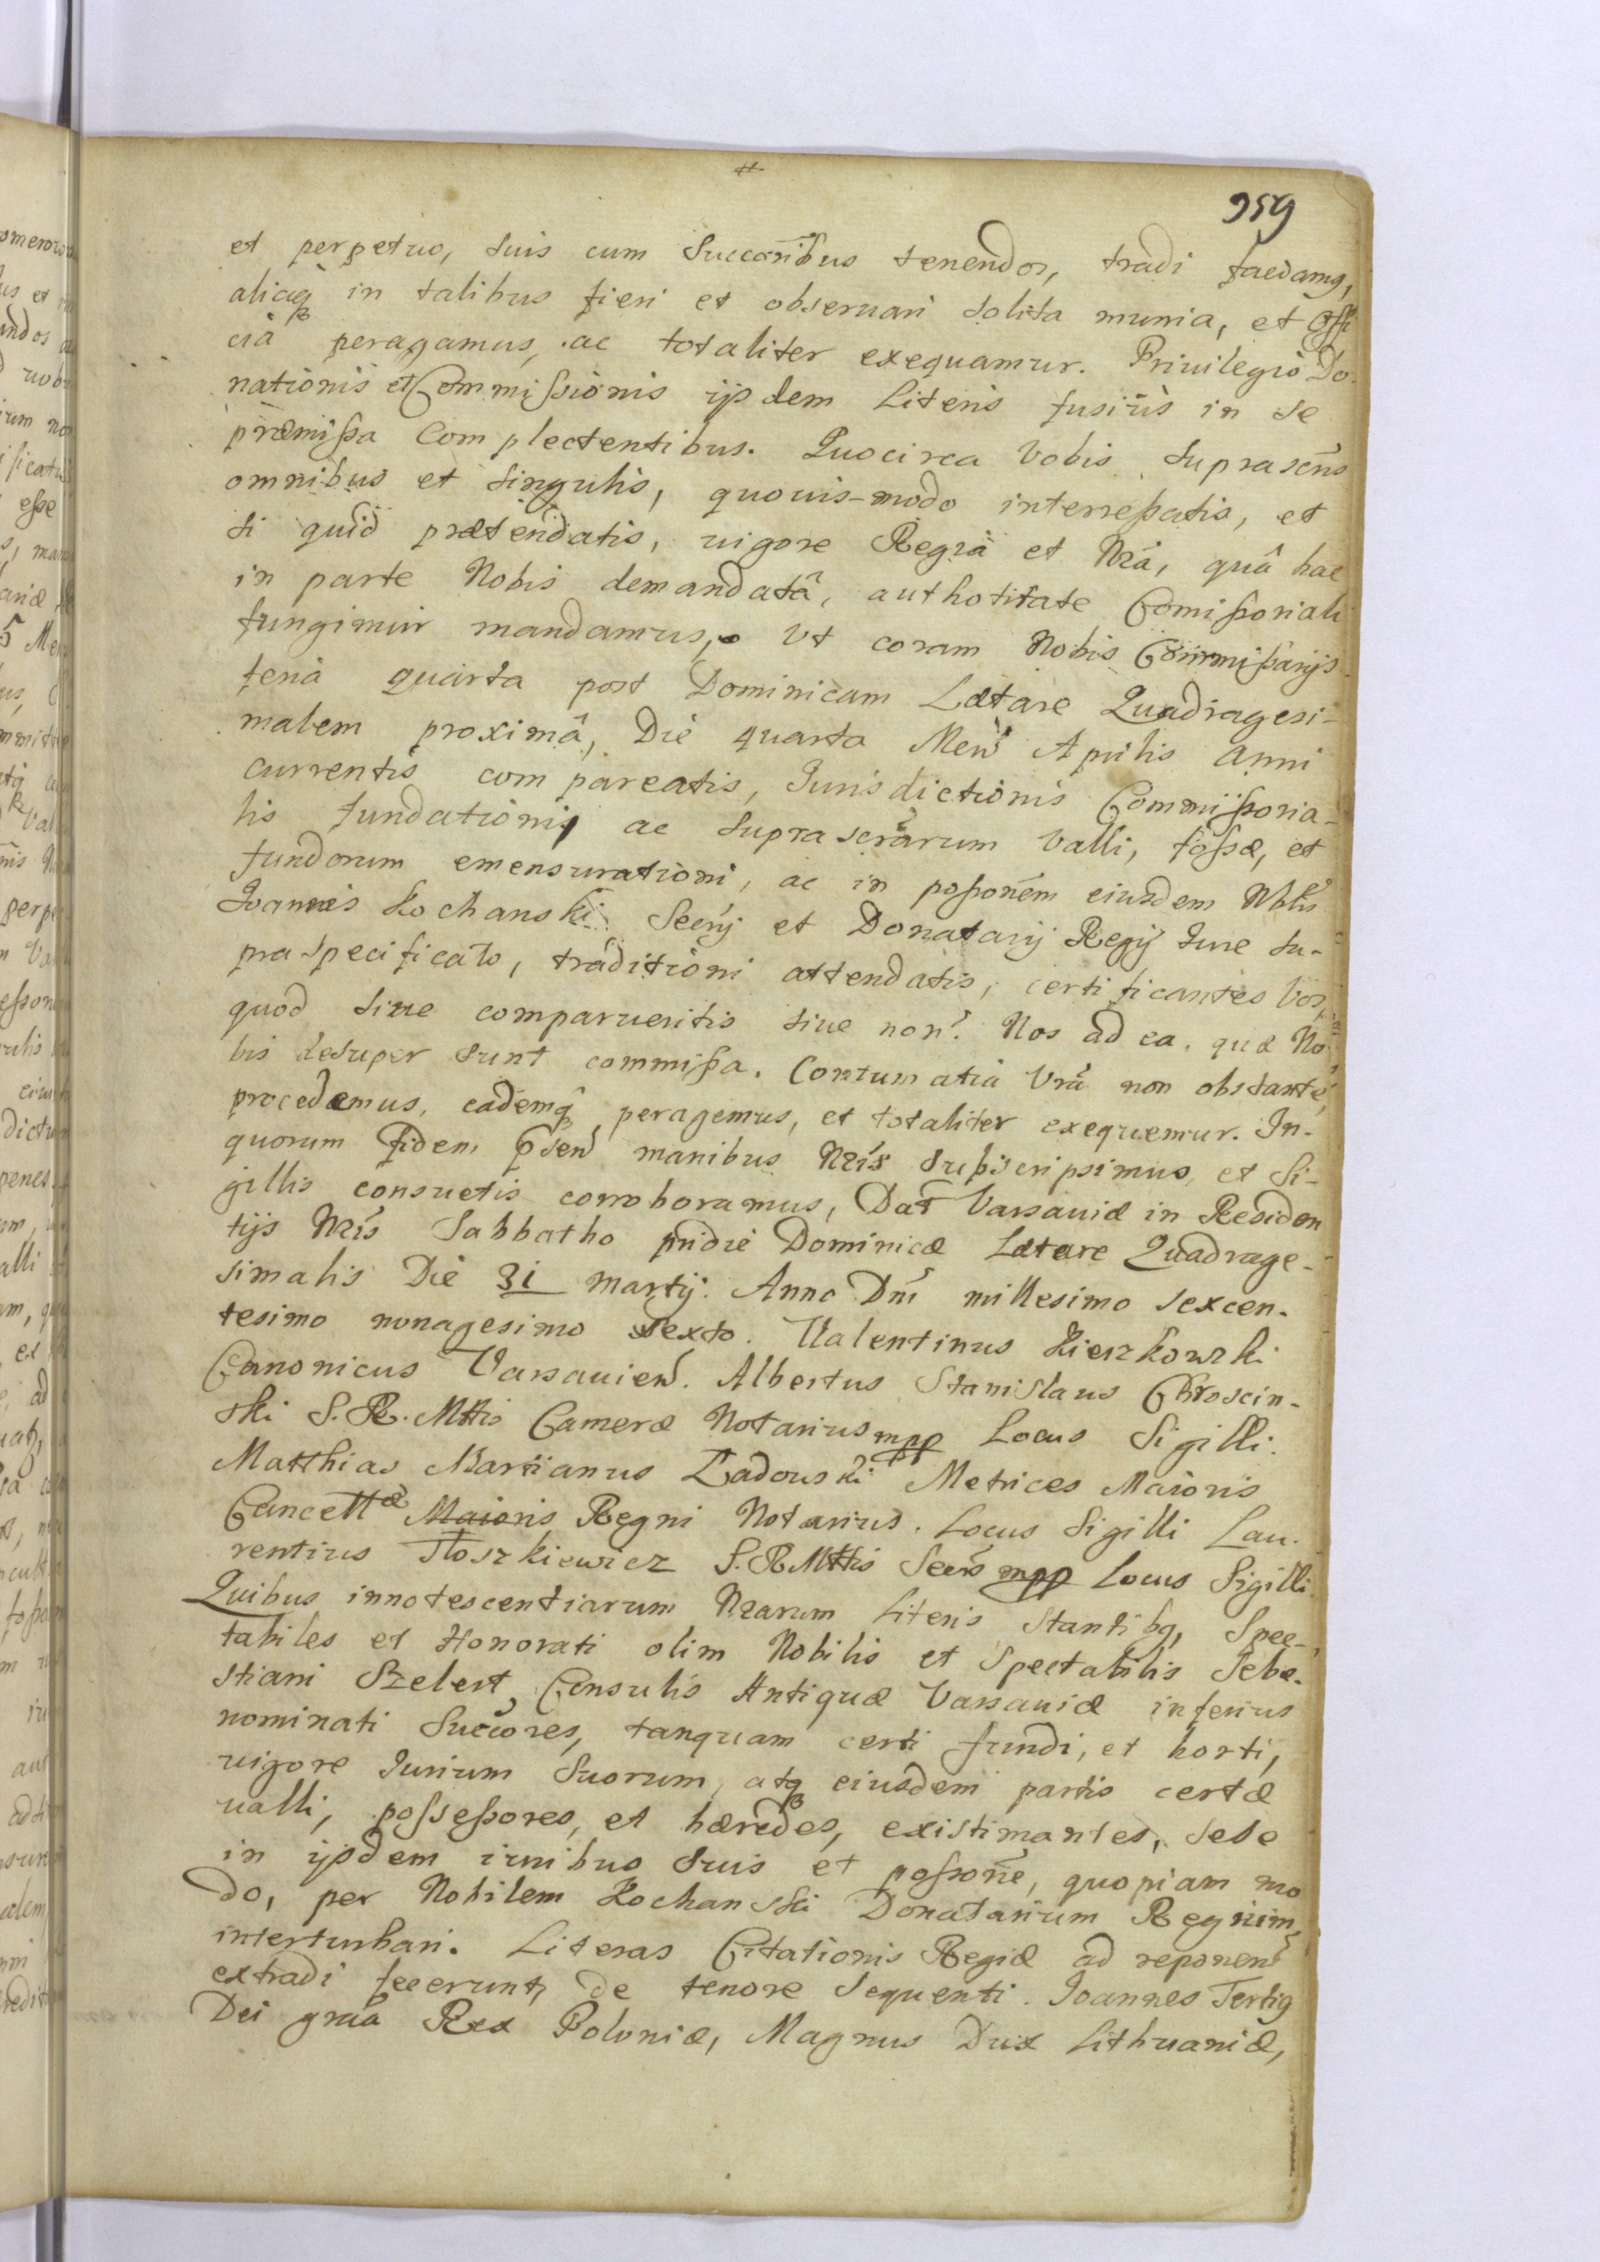 959
et perpetuo, suis cum Succoribus tenendos, tradi faciamq,
aliaq in talibus fieri et obseruari solita munia, et Offi
cia peragamus, ac totaliter exequamur. Priuilegio Do-
nationis et Commißionis ijsdem Literis fusiùs in se
præmißa Complectentibus. Quocirca Vobis suprascris
omnibus et singulis, quouis-modo intereßatis, et
si quid prætendatis, uigore Regia et Nrâ, quâ hac
in parte Nobis demandatâ, authotitate Comißoriali
fungimur mandamus, Vt coram Nobis Commißarijs
feria quarta post Dominicam Lætare Quadragesi-
malem proximâ, Die quarta Mens Aprilis Anni
currentis compareatis, Jurisdictionis Commißoria-
lis fundationi, ac suprascrarum Valli, foßæ, et
fundorum emensurationi, ac in poßonem eiusdem Nblis
Joannis Kochanski Secrij et Donatarij Regij Jure su-
praspecificato, traditioni attendatis, certificantes Vos,
quod siue comparueritis siue non. Nos ad ea, quæ No
bis desuper sunt commißa. Contumatia Vrâ non obstante,
procedemus, eademq peragemus, et totaliter exequemur. In-
quorum fidem psen manibus Nris subscripsimus, et Si-
gillis consuetis corroboramus, Dat Varsauiæ in Residen
tijs Nris Sabbatho pridie Dominicæ Lætare Quadrage-
simalis Die 31 Martij. Anno Dni millesimo sexcen-
tesimo nonagesimo Sexto. Valentinus Kierzkowski
Canonicus Varsauien. Albertus Stanislaus Chroscin-
ski S. R. Mttis Cameræ Notarius mpp Locus Sigilli.
Matthias Martianus Ładouski Metrices Maioris
Cancellæ Maioris Regni Notarius. Locus Sigilli Lau-
rentius Kloszkiewicz S. R Mttis Secrs mpp Locus Sigilli
Quibus innotescentiarum Nrarum Literis stantibq, Spec-
tabiles et Honorati olim Nobilis et Spectabilis Seba-
stiani Szelert, Consulis Antiquæ Varsauiæ inferius
nominati Succores, tanquam certi fundi, et horti,
uigore Jurium Suorum, atq eiusdem partis certæ
ualli, possessores, et hæredes, existimantes, sese
in ijsdem iuribus suis et poßone, quopiam mo
do, per Nobilem Kochanski Donatarium Regium,
interturbari. Literas Citationis Regiæ ad reponen
extradi fecerunt, de tenore sequenti. Joannes Tertiq
Dei gratia Rex Poloniæ, Magnus Dux Lithuaniæ,